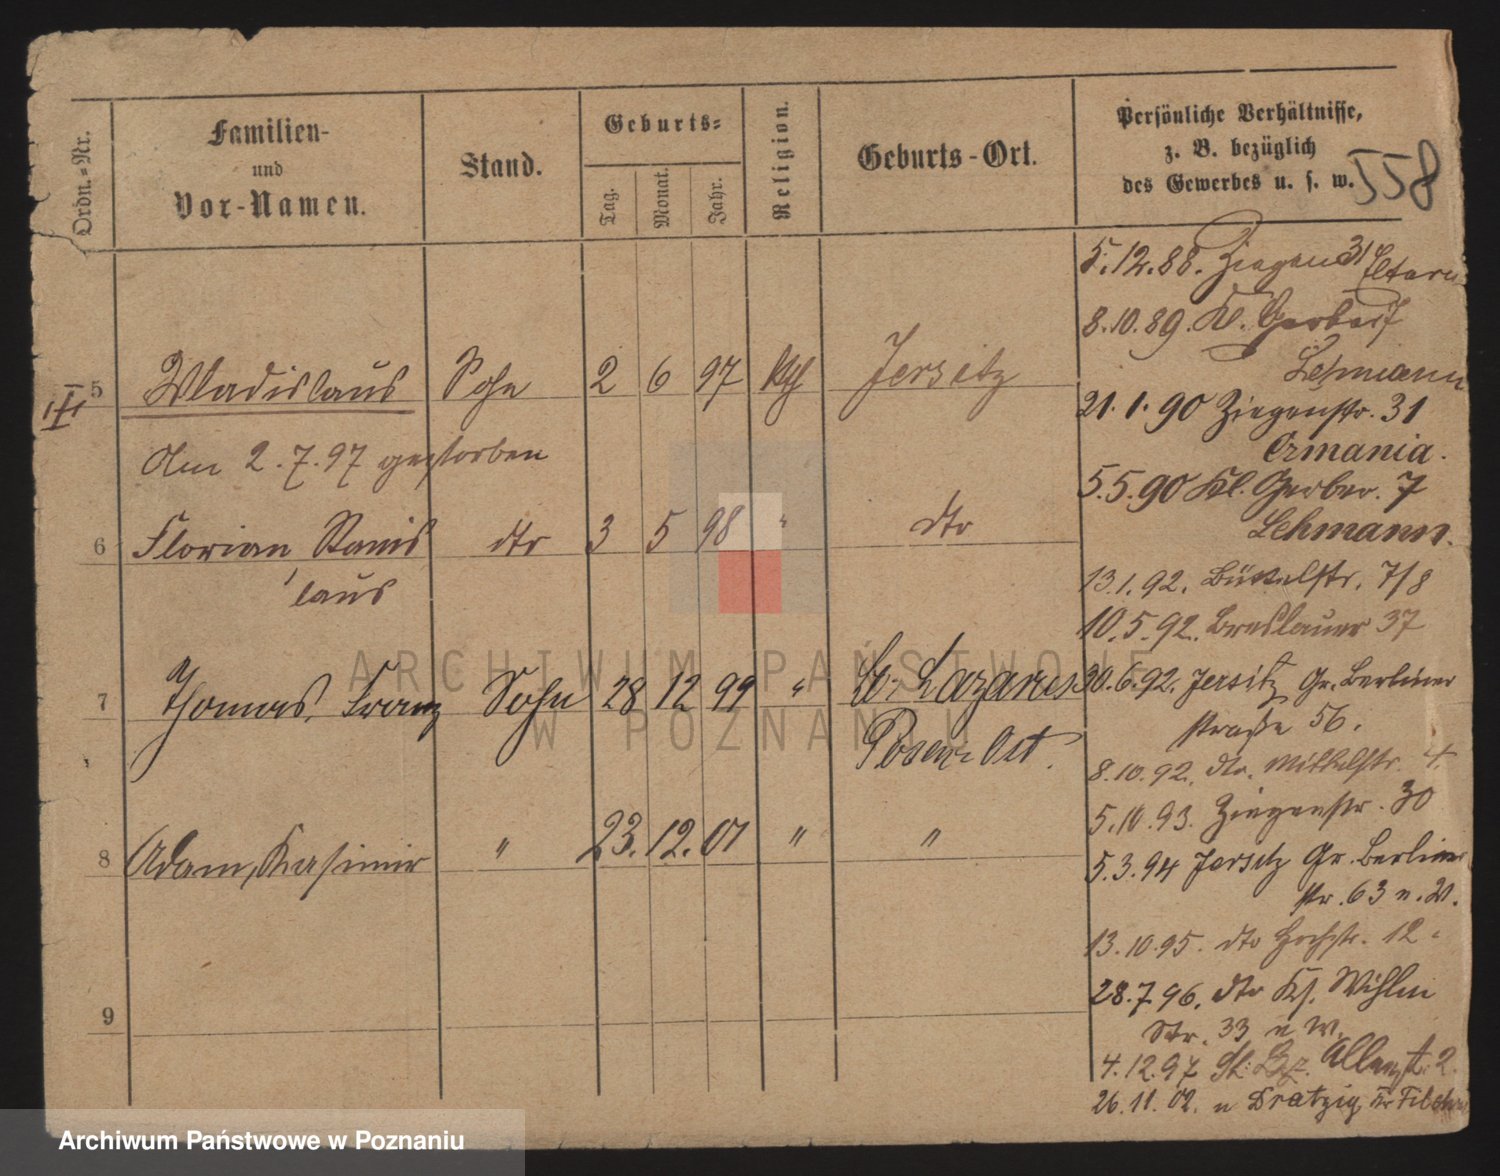 Ordn.-Nr.
Familien-
und
Vor-Namen.
Stand.
Geburts-
Tag.
Monat.
Jahr.
Religion.
Geburts-Ort.
Persönliche Verhältnisse,
z. B. bezüglich
des Gewerbes u. s. w.
558
5 Wladislaus Sohn 2 6 97 kth Jersitz
Am 2.7.97 gestorben
6 Florian, Stanis dto 3 5 98 " dto
laus
7 Thomas, Franz Sohn 28 12 99 " St. Lazarus
Posen Ost.
8 Adam, Kasimir " 23. 12. 01 " "
9
5.12.88. Ziegenstr 31 Eltern
8.10.89. Kl. Gerber 7
Lehmann
21.1.90 Ziegenstr. 31
Ermania.
5.5.90 Kl. Gerber. 7
Lehmann.
13.1.92. Büttelstr. 7/8
10.5.92. Breslauer 37
30.6.92. Jersitz Gr. Berliner
straße 56.
8.10.92. dto. Mittelstr. 4.
5.10.93. Ziegenstr. 30
5.3.94 Jersitz Gr. Berliner
str. 63 n. W.
13.10.95. dto Hochstr. 12.
28.7.96. dto Ks. Wilhlm
Str. 33 n W.
4.12.97 St. Laz. 2.
26.11.02. n Kr Filehne
ARCHIWUM PAŃSTWOWE
W POZNANIU
Archiwum Państwowe w Poznaniu